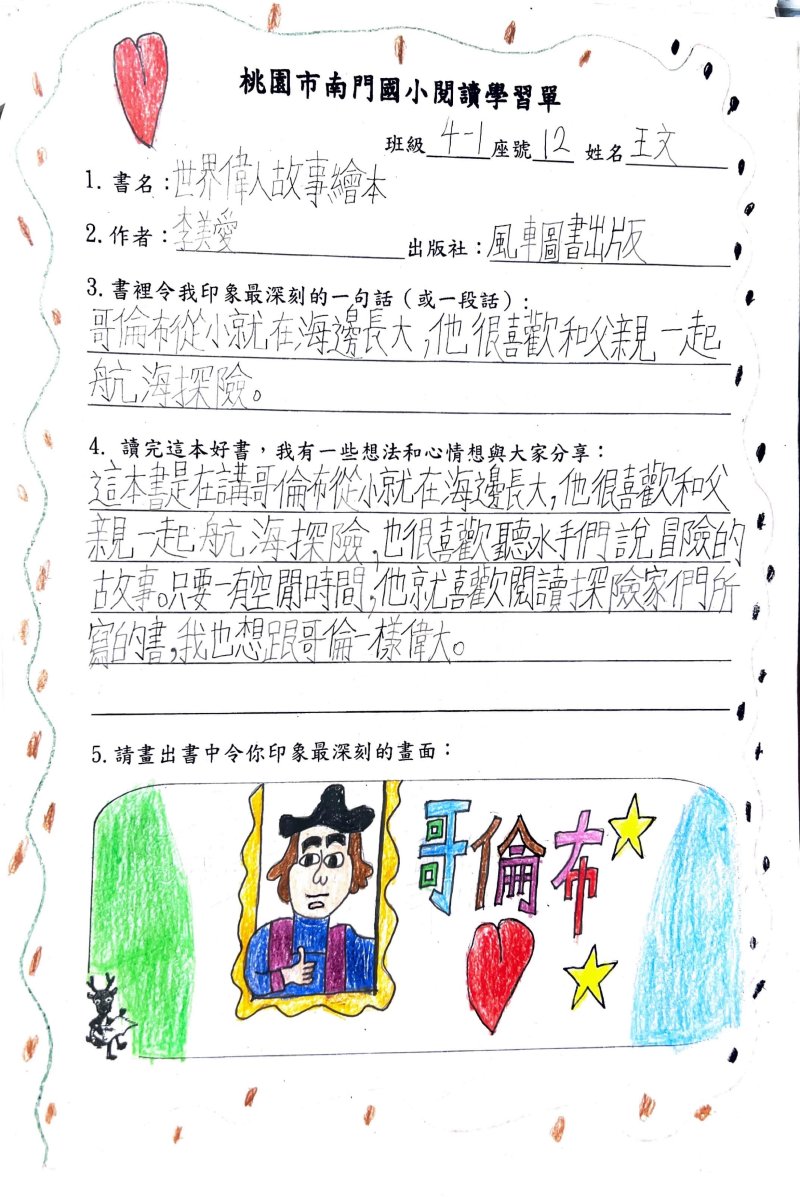 桃園市南門國小閱讀學習單
班級 4-1 座號 12 姓名 王文
1. 書名：世界偉人故事繪本
2. 作者：李美愛 出版社：風車圖書出版
3. 書裡令我印象最深刻的一句話（或一段話）：
哥倫布從小就在海邊長大，他很喜歡和父親一起
航海探險。
4. 讀完這本好書，我有一些想法和心情想與大家分享：
這本書是在講哥倫布從小就在海邊長大，他很喜歡和父
親一起航海探險，也很喜歡聽水手們說冒險的
故事。只要一有空閒時間，他就喜歡閱讀探險家們所
寫的書，我也想跟哥倫一樣偉大。
5. 請畫出書中令你印象最深刻的畫面：
哥倫布